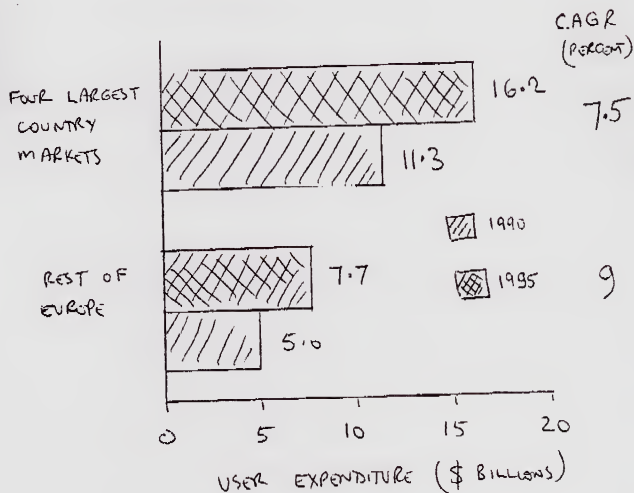 C.AGR
(PERCENT)
FOUR LARGEST
COUNTRY
MARKETS
16.2
11.3
7.5
1990
1995
REST OF
EUROPE
7.7
5.0
9
0 5 10 15 20
USER EXPENDITURE ($ BILLIONS)